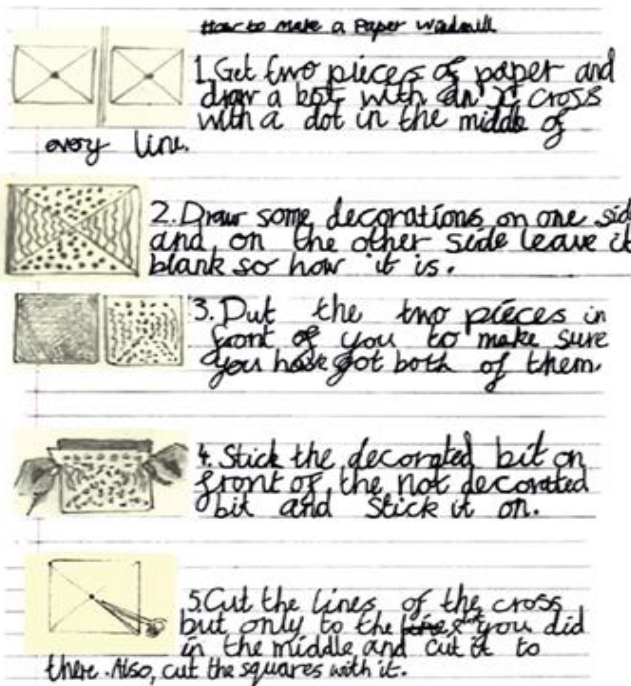 How to make a Paper windmill
1. Get two pieces of paper and
draw a box with an 'x' cross
with a dot in the middle of
every line.
2. Draw some decorations on one sid
and on the other side leave it
blank so how it is.
3. Put the two pieces in
front of you to make sure
you have got both of them.
4. Stick the decorated bit on
front of the not decorated
bit and stick it on.
5. Cut the lines of the cross
but only to the dot you did
in the middle and cut it to
there. Also, cut the squares with it.